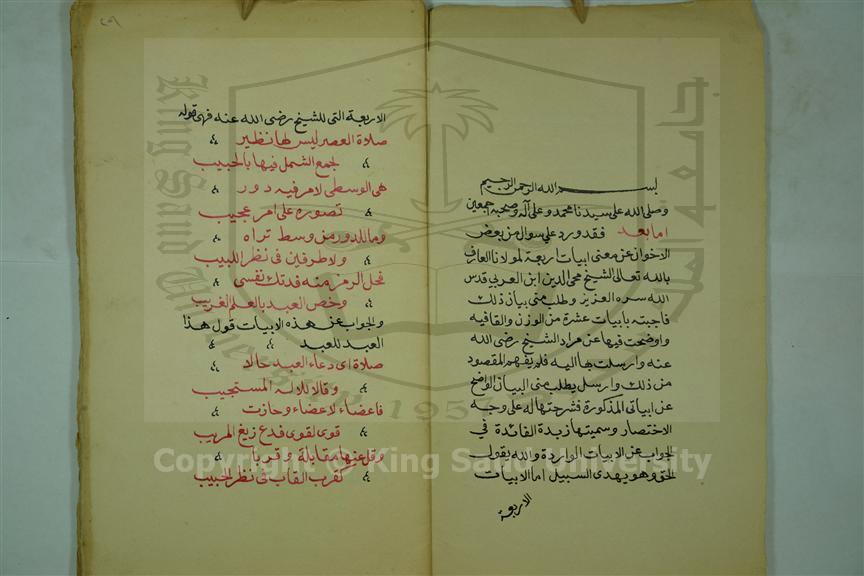 بسم الله الرحمن الرحيم
وصلى الله على سيدنا محمد وعلى آله وصحبه جمعين
اما بعد فقد ورد علي سوال من بعض
الاخوان عن معنى ابيات اربعة لمولانا العارف
بالله تعالى الشيخ محي الدين ابن العربي قدس
الله سره العزيز وطلب منى بيان ذلك
فاجبته بابيات عشرة من الوزن والقافيه
واوضحت فيها عن مراد الشيخ رضى الله
عنه وارسلت بها اليه فلم يفهم المقصود
من ذلك وارسل يطلب منى البيان الواضح
عن ابياتى المذكورة فشرحتها له على وجه
الاختصار وسميتها زبدة الفائدة في
الجواب عن الابيات الواردة والله يقول
الحق وهو يهدى السبيل اما الابيات
الاربعة
٢٥٦
الاربعة التى للشيخ رضى الله عنه فهى قوله
صلاة العصر ليس لها نظير
لجمع الشمل فيها بالحبيب
هى الوسطى لامر فيه دور
تصوره على امر عجيب
وما للدور من وسط تراه
ولا طرفين فى نظر اللبيب
فحل الرمز منه فدتك نفسى
وخص العبد بالعلم الغريب
والجواب عن هذه الابيات قول هذا
العبد للعبد
صلاة اى دعاء العبد حالا
وقالا للاله المستجيب
فاعضاء لاعضاء وحازت
قوى لقوى فدع زيغ المريب
وقل عنها مقابلة وقربا
كقرب القاب فى نظر الحبيب
Copyright © King Saud University
King Saud University
جامعة الملك سعود
1957